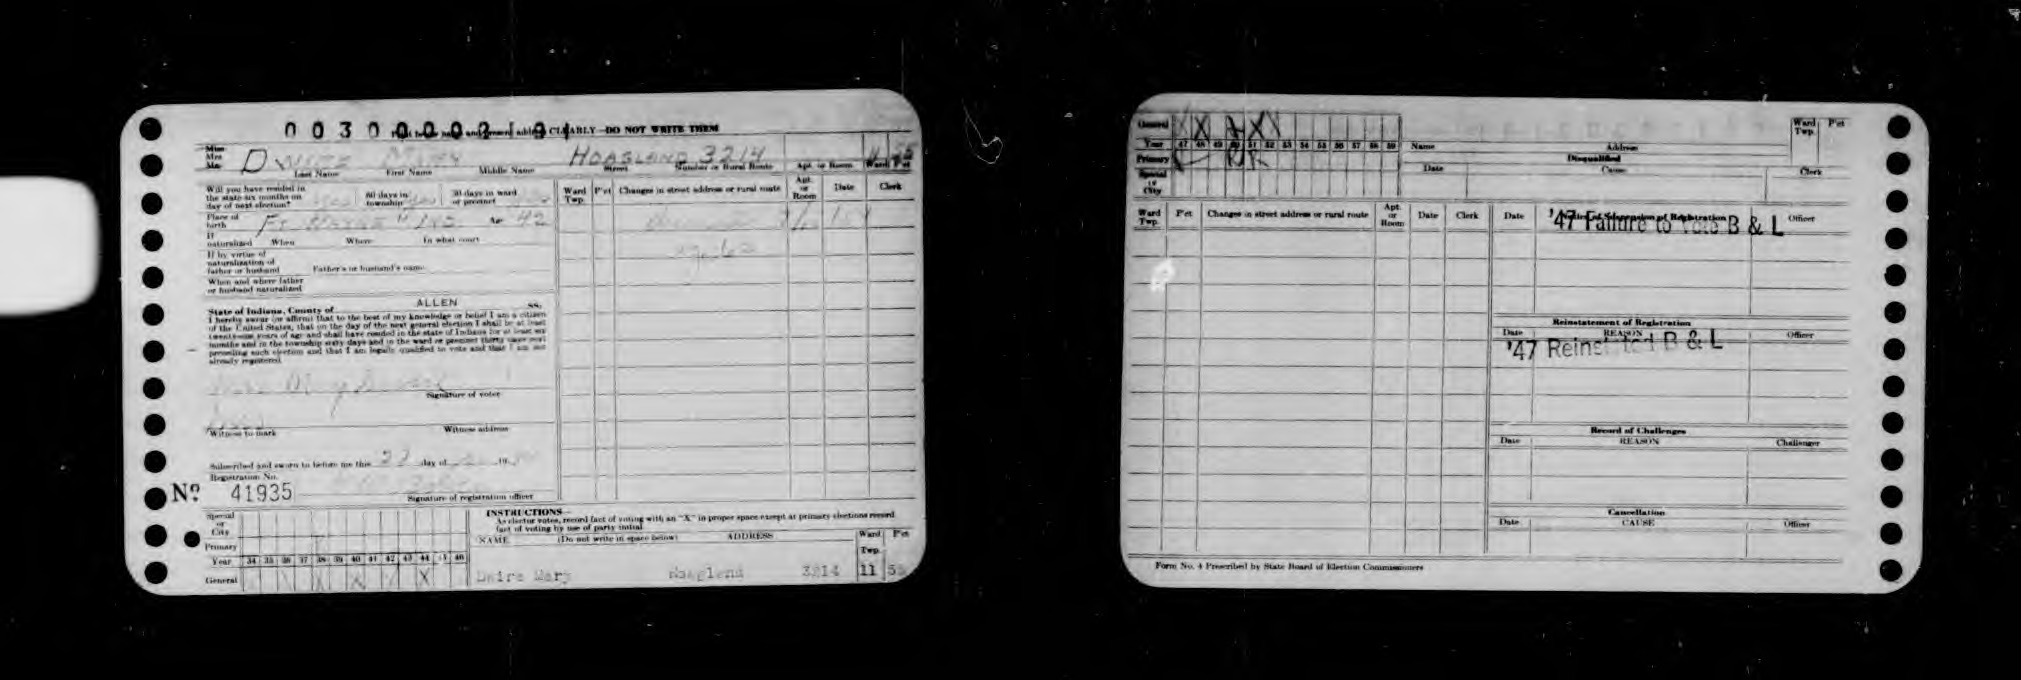 0 0 3 0 0 0 0 2 9
CLEARLY—DO NOT WRITE THEM
Miss
Mrs
Mr.
MARY HOAGLAND 3214 11
Last Name First Name Middle Name Street Number or Rural Route Apt. or Room Ward P'ct
Will you have resided in
the state six months on
day of next election? 60 days in
township yes 30 days in ward
or precinct
Place of
birth Ft. Wayne Ind Age 42
If
naturalized When Where In what court
If by virtue of
naturalization of
father or husband Father's or husband's name
When and where father
or husband naturalized
Ward
Twp. P'ct Changes in street address or rural route Apt.
or
Room Date Clerk
State of Indiana, County of ALLEN ss.
I hereby swear (or affirm) that to the best of my knowledge or belief I am a citizen
of the United States, that on the day of the next general election I shall be at least
twenty-one years of age and shall have resided in the state of Indiana for at least six
months and in the township sixty days and in the ward or precinct thirty days next
preceding such election and that I am legally qualified to vote and that I am not
already registered
Signature of voter
Witness to mark Witness address
Subscribed and sworn to before me this day of 19
Registration No.
No 41935 Signature of registration officer
Special
or
City
Primary
Year 34 35 36 37 38 39 40 41 42 43 44 45 46
General X X
INSTRUCTIONS—
As elector votes, record fact of voting with an "X" in proper space except at primary elections record
fact of voting by use of party initial
NAME (Do not write in space below) ADDRESS Ward
Twp. P'ct
Mary Hoagland 3214 11
General X X X X
Year 47 48 49 50 51 52 53 54 55 56 57 58 59
Primary
Special
or
City
Name Address Ward
Twp. P'ct
Disqualified
Date Cause Clerk
Ward
Twp. P'ct Changes in street address or rural route Apt.
or
Room Date Clerk
Date Notice of Suspension of Registration Officer
'47 Failure to Vote B & L
Reinstatement of Registration
Date REASON Officer
'47 Reinstated B & L
Record of Challenges
Date REASON Challenger
Cancellation
Date CAUSE Officer
Form No. 4 Prescribed by State Board of Election Commissioners